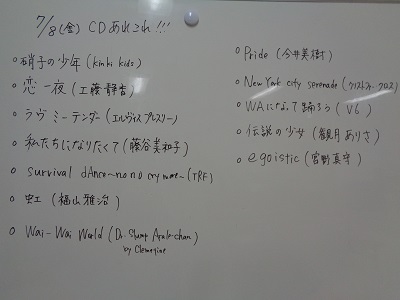 7/8(金) CDあれこれ!!!
○硝子の少年(kinki kids)
○恋一夜(工藤静香)
○ラヴ ミーテンダー(エルヴィスプレスリー)
○私たちになりたくて(藤谷美和子)
○survival dAnce〜no no cry more〜(TRF)
○虹(福山雅治)
○Wai-Wai World(Dr. Slump Arale-chan
by Clémentine
○Pride(今井美樹)
○New York city serenade(クリストファー・クロス)
○WAになって踊ろう(V6)
○伝説の少女(観月ありさ)
○egoistic(宮野真守)